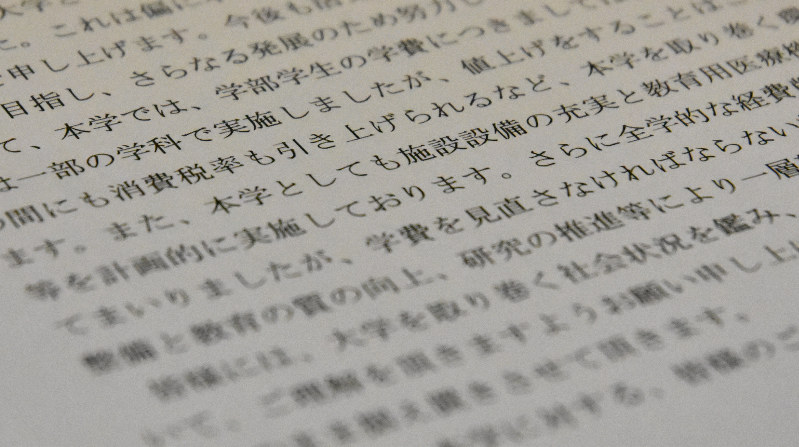 大学と
た。これは偏に
申し上げます。今後も
目指し、さらなる発展のため努力し
て、本学では、学部学生の学費につきましては
は一部の学科で実施しましたが、値上げをすることは
間にも消費税率も引き上げられるなど、本学を取り巻く
ます。また、本学としても施設設備の充実と教育用医療
等を計画的に実施しております。さらに全学的な経費
てまいりましたが、学費を見直さなければならない
整備と教育の質の向上、研究の推進等により一層
皆様には、大学を取り巻く社会状況を鑑み、
いて、ご理解を頂きますようお願い申し上げ
まま据え置きさせて頂きます。
本学に対する、皆様のご